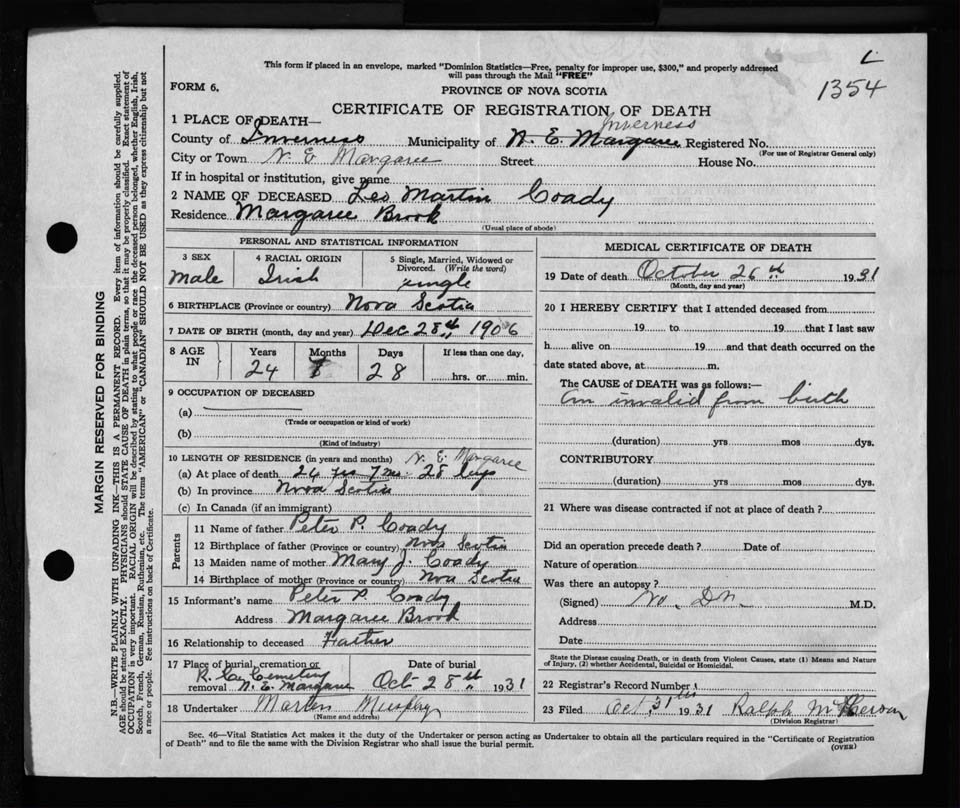 This form if placed in an envelope, marked "Dominion Statistics—Free, penalty for improper use, $300," and properly addressed
will pass through the Mail "FREE"
L
1354
FORM 6.
PROVINCE OF NOVA SCOTIA
CERTIFICATE OF REGISTRATION OF DEATH
1 PLACE OF DEATH—
Inverness
County of Inverness Municipality of N. E. Margaree Registered No.
(For use of Registrar General only)
City or Town N. E Margaree Street House No.
If in hospital or institution, give name
2 NAME OF DECEASED Leo Martin Coady
Residence Margaree Brook
(Usual place of abode)
PERSONAL AND STATISTICAL INFORMATION
3 SEX 4 RACIAL ORIGIN 5 Single, Married, Widowed or
Divorced. (Write the word)
Male Irish single
6 BIRTHPLACE (Province or country) Nova Scotia
7 DATE OF BIRTH (month, day and year) Dec 28th 1906
8 AGE IN Years Months Days If less than one day,
24 28 hrs. or min.
9 OCCUPATION OF DECEASED
(a)
(Trade or occupation or kind of work)
(b)
(Kind of industry)
10 LENGTH OF RESIDENCE (in years and months) N. E. Margaree
(a) At place of death 24 yrs 7 ms. 28 dys
(b) In province Nova Scotia
(c) In Canada (if an immigrant)
Parents
11 Name of father Peter P. Coady
12 Birthplace of father (Province or country) Nova Scotia
13 Maiden name of mother Mary J. Coady
14 Birthplace of mother (Province or country) Nova Scotia
15 Informant's name Peter P. Coady
Address Margaree Brook
16 Relationship to deceased Father
17 Place of burial, cremation or Date of burial
R. C. Cemetery
removal N. E. Margaree Oct 28th 1931
18 Undertaker Martin Murphy
(Name and address)
MEDICAL CERTIFICATE OF DEATH
19 Date of death October 26th 1931
(Month, day and year)
20 I HEREBY CERTIFY that I attended deceased from
19 to 19 that I last saw
h alive on 19 and that death occurred on the
date stated above, at m.
The CAUSE of DEATH was as follows:—
An invalid from birth
(duration) yrs mos dys.
CONTRIBUTORY
(duration) yrs mos dys.
21 Where was disease contracted if not at place of death?
Did an operation precede death? Date of
Nature of operation
Was there an autopsy?
(Signed) No. Dr. M.D.
Address
Date
State the Disease causing Death, or in death from Violent Causes, state (1) Means and Nature
of Injury, (2) whether Accidental, Suicidal or Homicidal.
22 Registrar's Record Number
23 Filed Oct. 31st 1931 Ralph
(Division Registrar)
Sec. 46—Vital Statistics Act makes it the duty of the Undertaker or person acting as Undertaker to obtain all the particulars required in the "Certificate of Registration
of Death" and to file the same with the Division Registrar who shall issue the burial permit. (OVER)
MARGIN RESERVED FOR BINDING
N.B.—WRITE PLAINLY WITH UNFADING INK—THIS IS A PERMANENT RECORD. Every item of information should be carefully supplied.
AGE should be stated EXACTLY. PHYSICIANS should STATE CAUSE OF DEATH in plain terms, so that it may be properly classified. Exact statement of
OCCUPATION is very important. RACIAL ORIGIN will be described by stating to what people or race the deceased person belonged, whether English, Irish,
Scotch, French, German, Russian, Ruthenian, etc. The terms "AMERICAN" or "CANADIAN" SHOULD NOT BE USED as they express citizenship but not
a race or people. See instructions on back of Certificate.